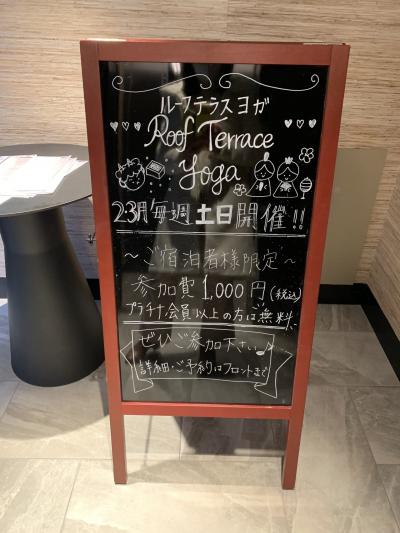 ルーフテラスヨガ
Roof Terrace
Yoga
2.3月毎週土日開催!!
～ご宿泊者様限定～
参加費1,000円(税込)
プラチナ会員以上の方は無料
ぜひご参加下さい♪
詳細・ご予約はフロントまで